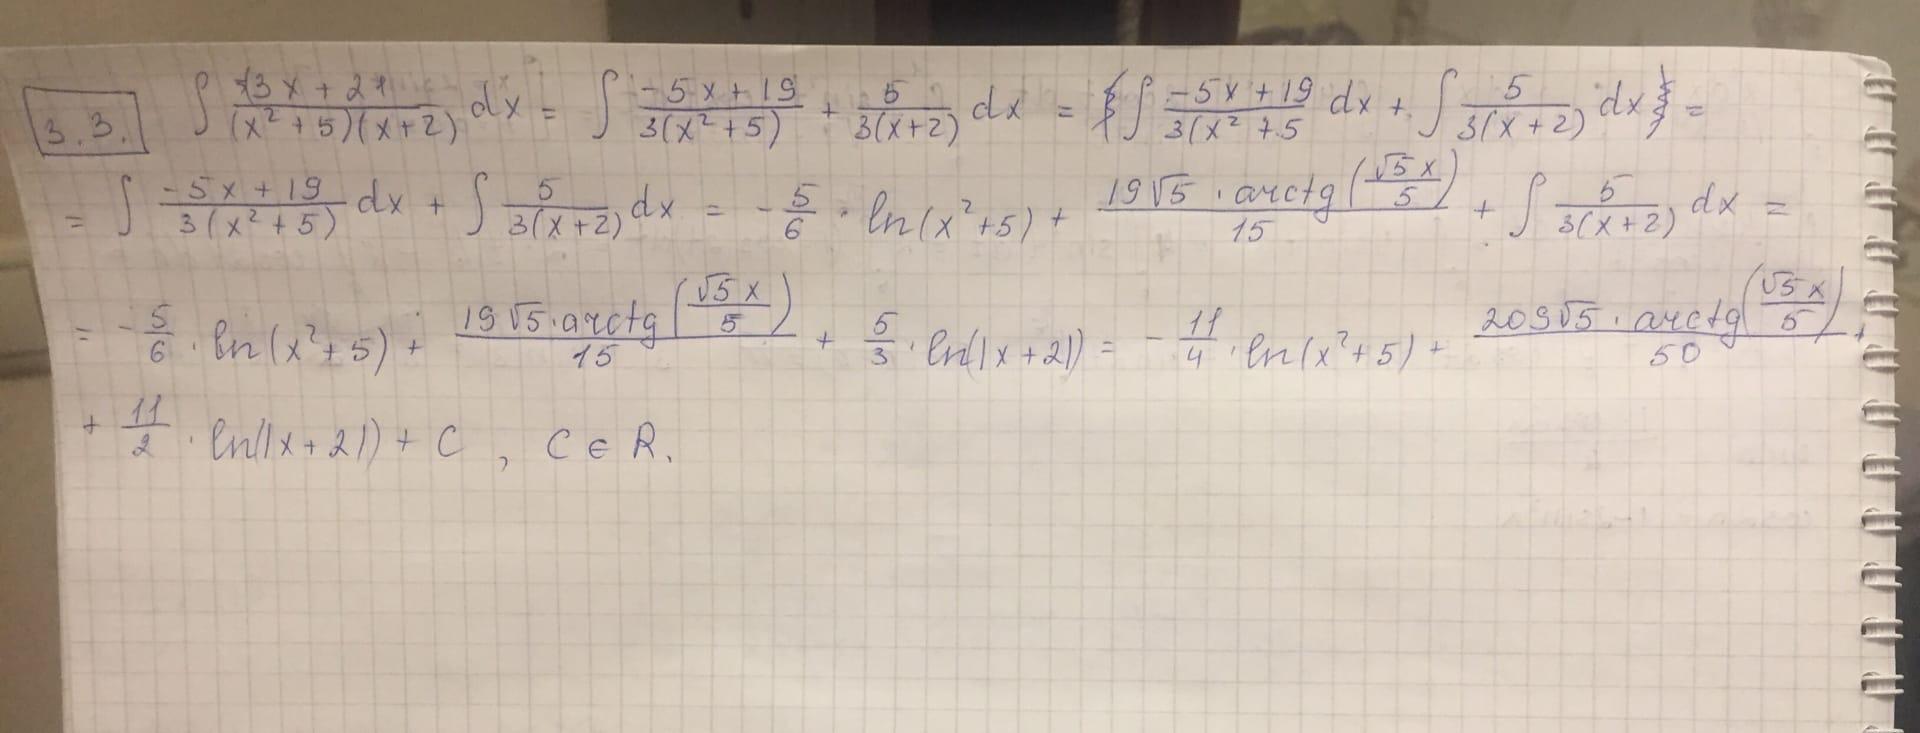 3.3. ∫ (3x + 21)/((x² + 5)(x+2)) dx = ∫ (-5x + 19)/(3(x² + 5)) + 5/(3(x+2)) dx = {∫ (-5x + 19)/(3(x² + 5) dx + ∫ 5/(3(x+2)) dx} =
= ∫ (-5x + 19)/(3(x² + 5)) dx + ∫ 5/(3(x+2)) dx = - 5/6 · ln(x² + 5) + (19√5 · arctg(√5 x/5))/15 + ∫ 5/(3(x+2)) dx =
= - 5/6 · ln(x² + 5) + (19√5 · arctg(√5 x/5))/15 + 5/3 · ln(|x + 2|) = - 11/4 · ln(x² + 5) + (209√5 · arctg(√5 x/5))/50 +
+ 11/2 · ln(|x + 2|) + C , C ∈ R.